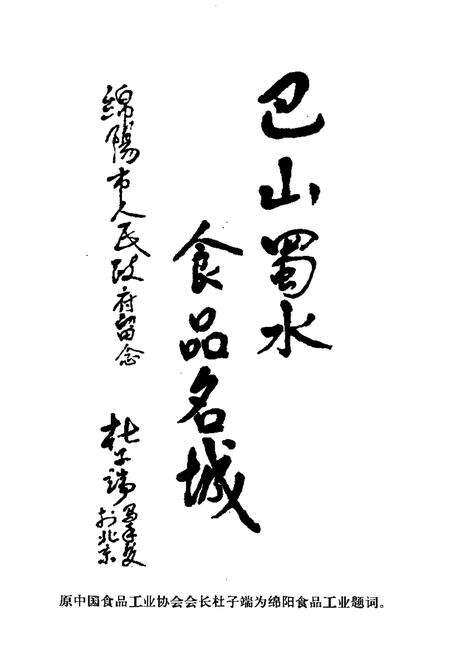 巴山蜀水
食品名城
綿陽市人民政府留念
杜子端
于北京
原中国食品工业协会会长杜子端为绵阳食品工业题词。